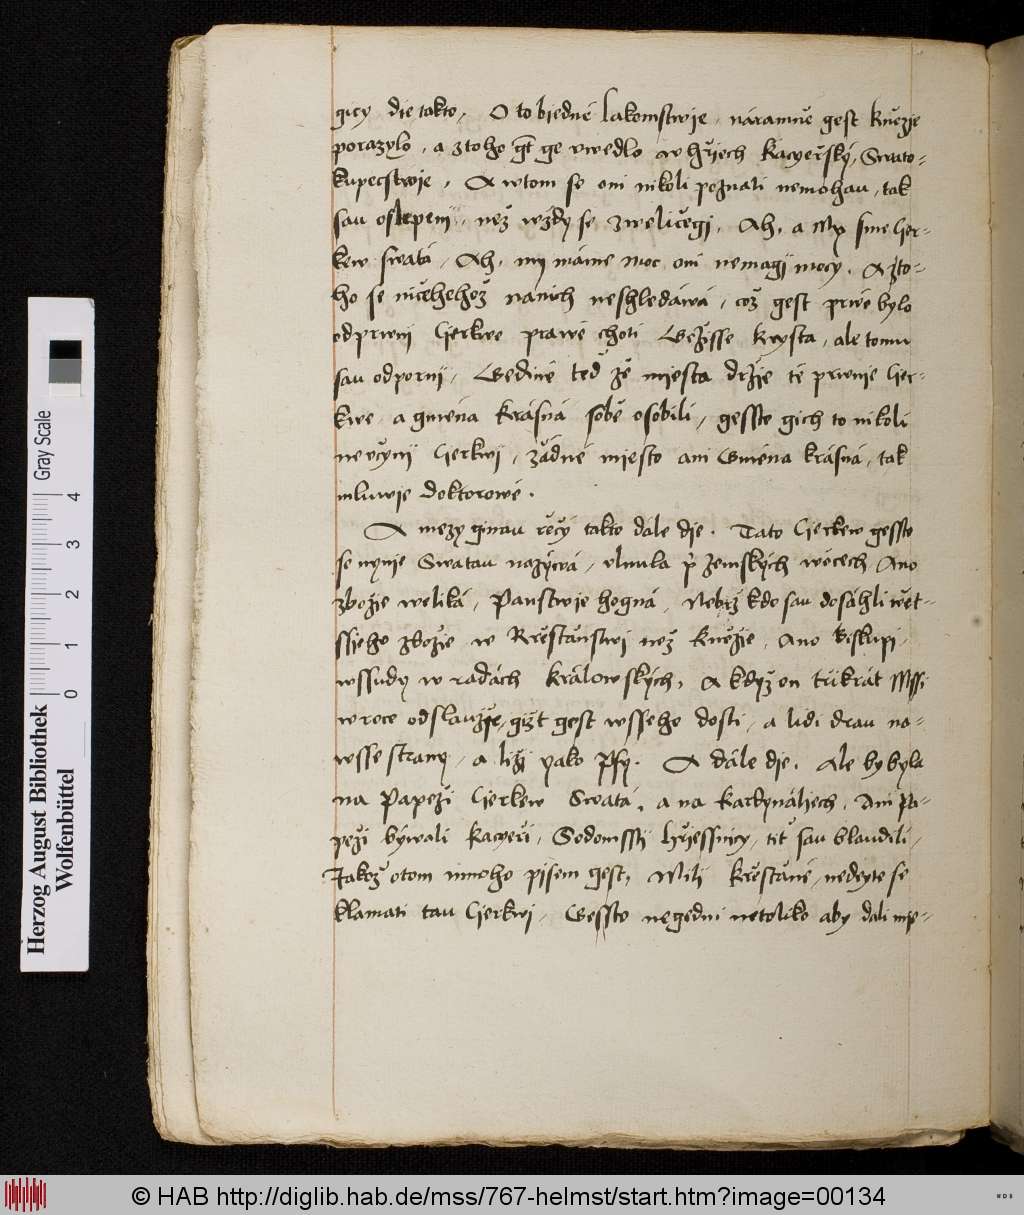 gicy die takto, O to biedné lakomstwie, náramně gest kněžie
porazylo, a ztoho gt ge vwedlo w hřiech Kacyeřský, Swato-
kupecstwie, A wtom se oni nikoli poznali nemohau, tak
sau oslepeni, než wždy se zweličegi, Ah, a My sme Cer-
kew swatá, Ah, my máme moc oni nemagij mocy. A zto-
ho se ničehehož nanich neshledáwá, což gest prwé bylo
odprwnij Cierkwe prawé choti Gežisse Krysta, ale tomu
sau odpornij, Gedině teď že miesta držie té prwnie Cer-
kwe a gména krásná sobě osobili, gessto gich to nikoli
nevčynij Cierkwij, žádné miesto ani Gména krásná, tak
mluwie doktorowé.
A mezy ginau řečij takto dále die. Tato Cierkew gessto
se nynie Swatau nazýwá, vlnula při zemských wěcech Ano
zbožie weliká, Panstwie hogná, Nebť kdo sau dosáhli wět-
ssieho zbožie w Křesťanstwi než Kněžie, Ano Biskupi,
wssudy w radách Králowských, A když on třikrát Mssi
w roce odslaužie, gižt gest wsseho dosti, a lidi drau na-
wsse strany, a liži yako psy. A dále die. Ale by byla
na Papeži Cierkew Swatá, a na Kardynáliech, Ani Pa-
peži býwali Kacyeři, Sodomsstij hřiessnicy, tit sau blaudili,
Jakož otom mnoho pjsem gest, Milij Křesťané, nedeyte se
klamati tau Cierkwi, Gessto negedni netoliko aby dali mje-
Herzog August Bibliothek
Wolfenbüttel
Gray Scale
0 1 2 3 4
© HAB http://diglib.hab.de/mss/767-helmst/start.htm?image=00134